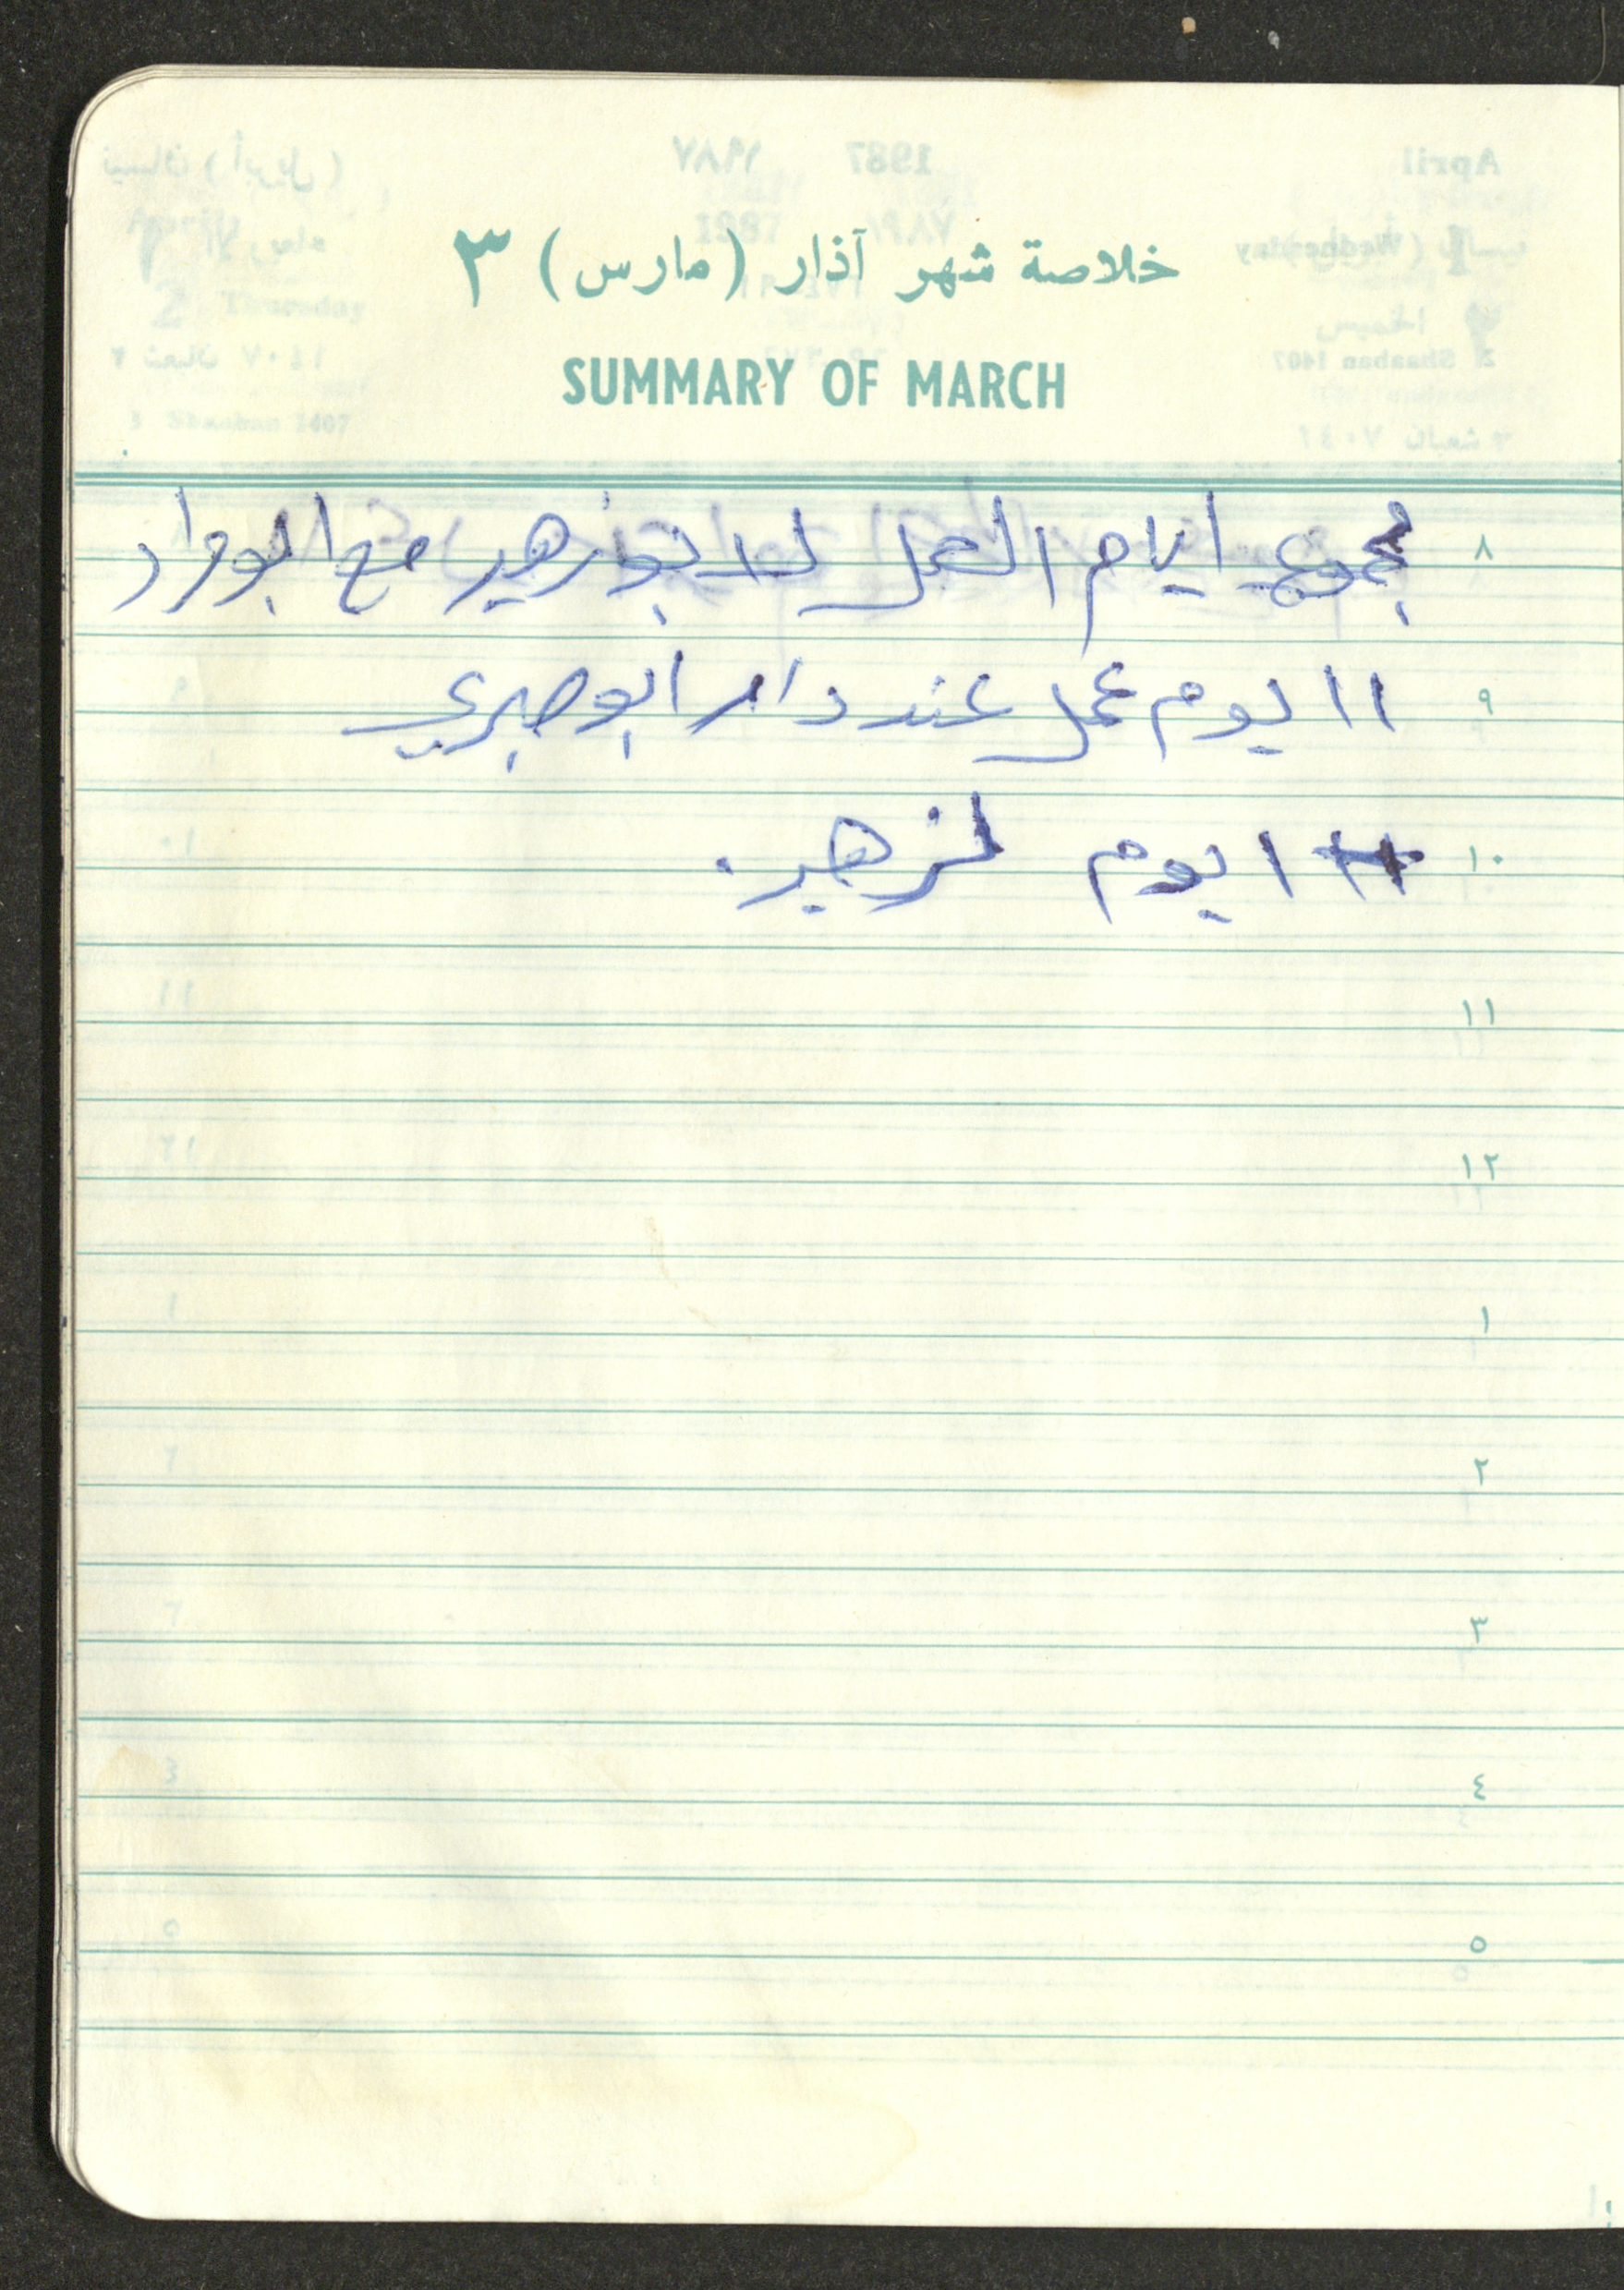 خلاصة شهر آذار (مارس) ٣
SUMMARY OF MARCH
٨ مجموع ايام العمل لابو زهير مع ابو مراد
٩ ١١ يوم عمل عند دار ابو صبري
١٠ ١ يوم لزهير.
١١
١٢
١
٢
٣
٤
٥